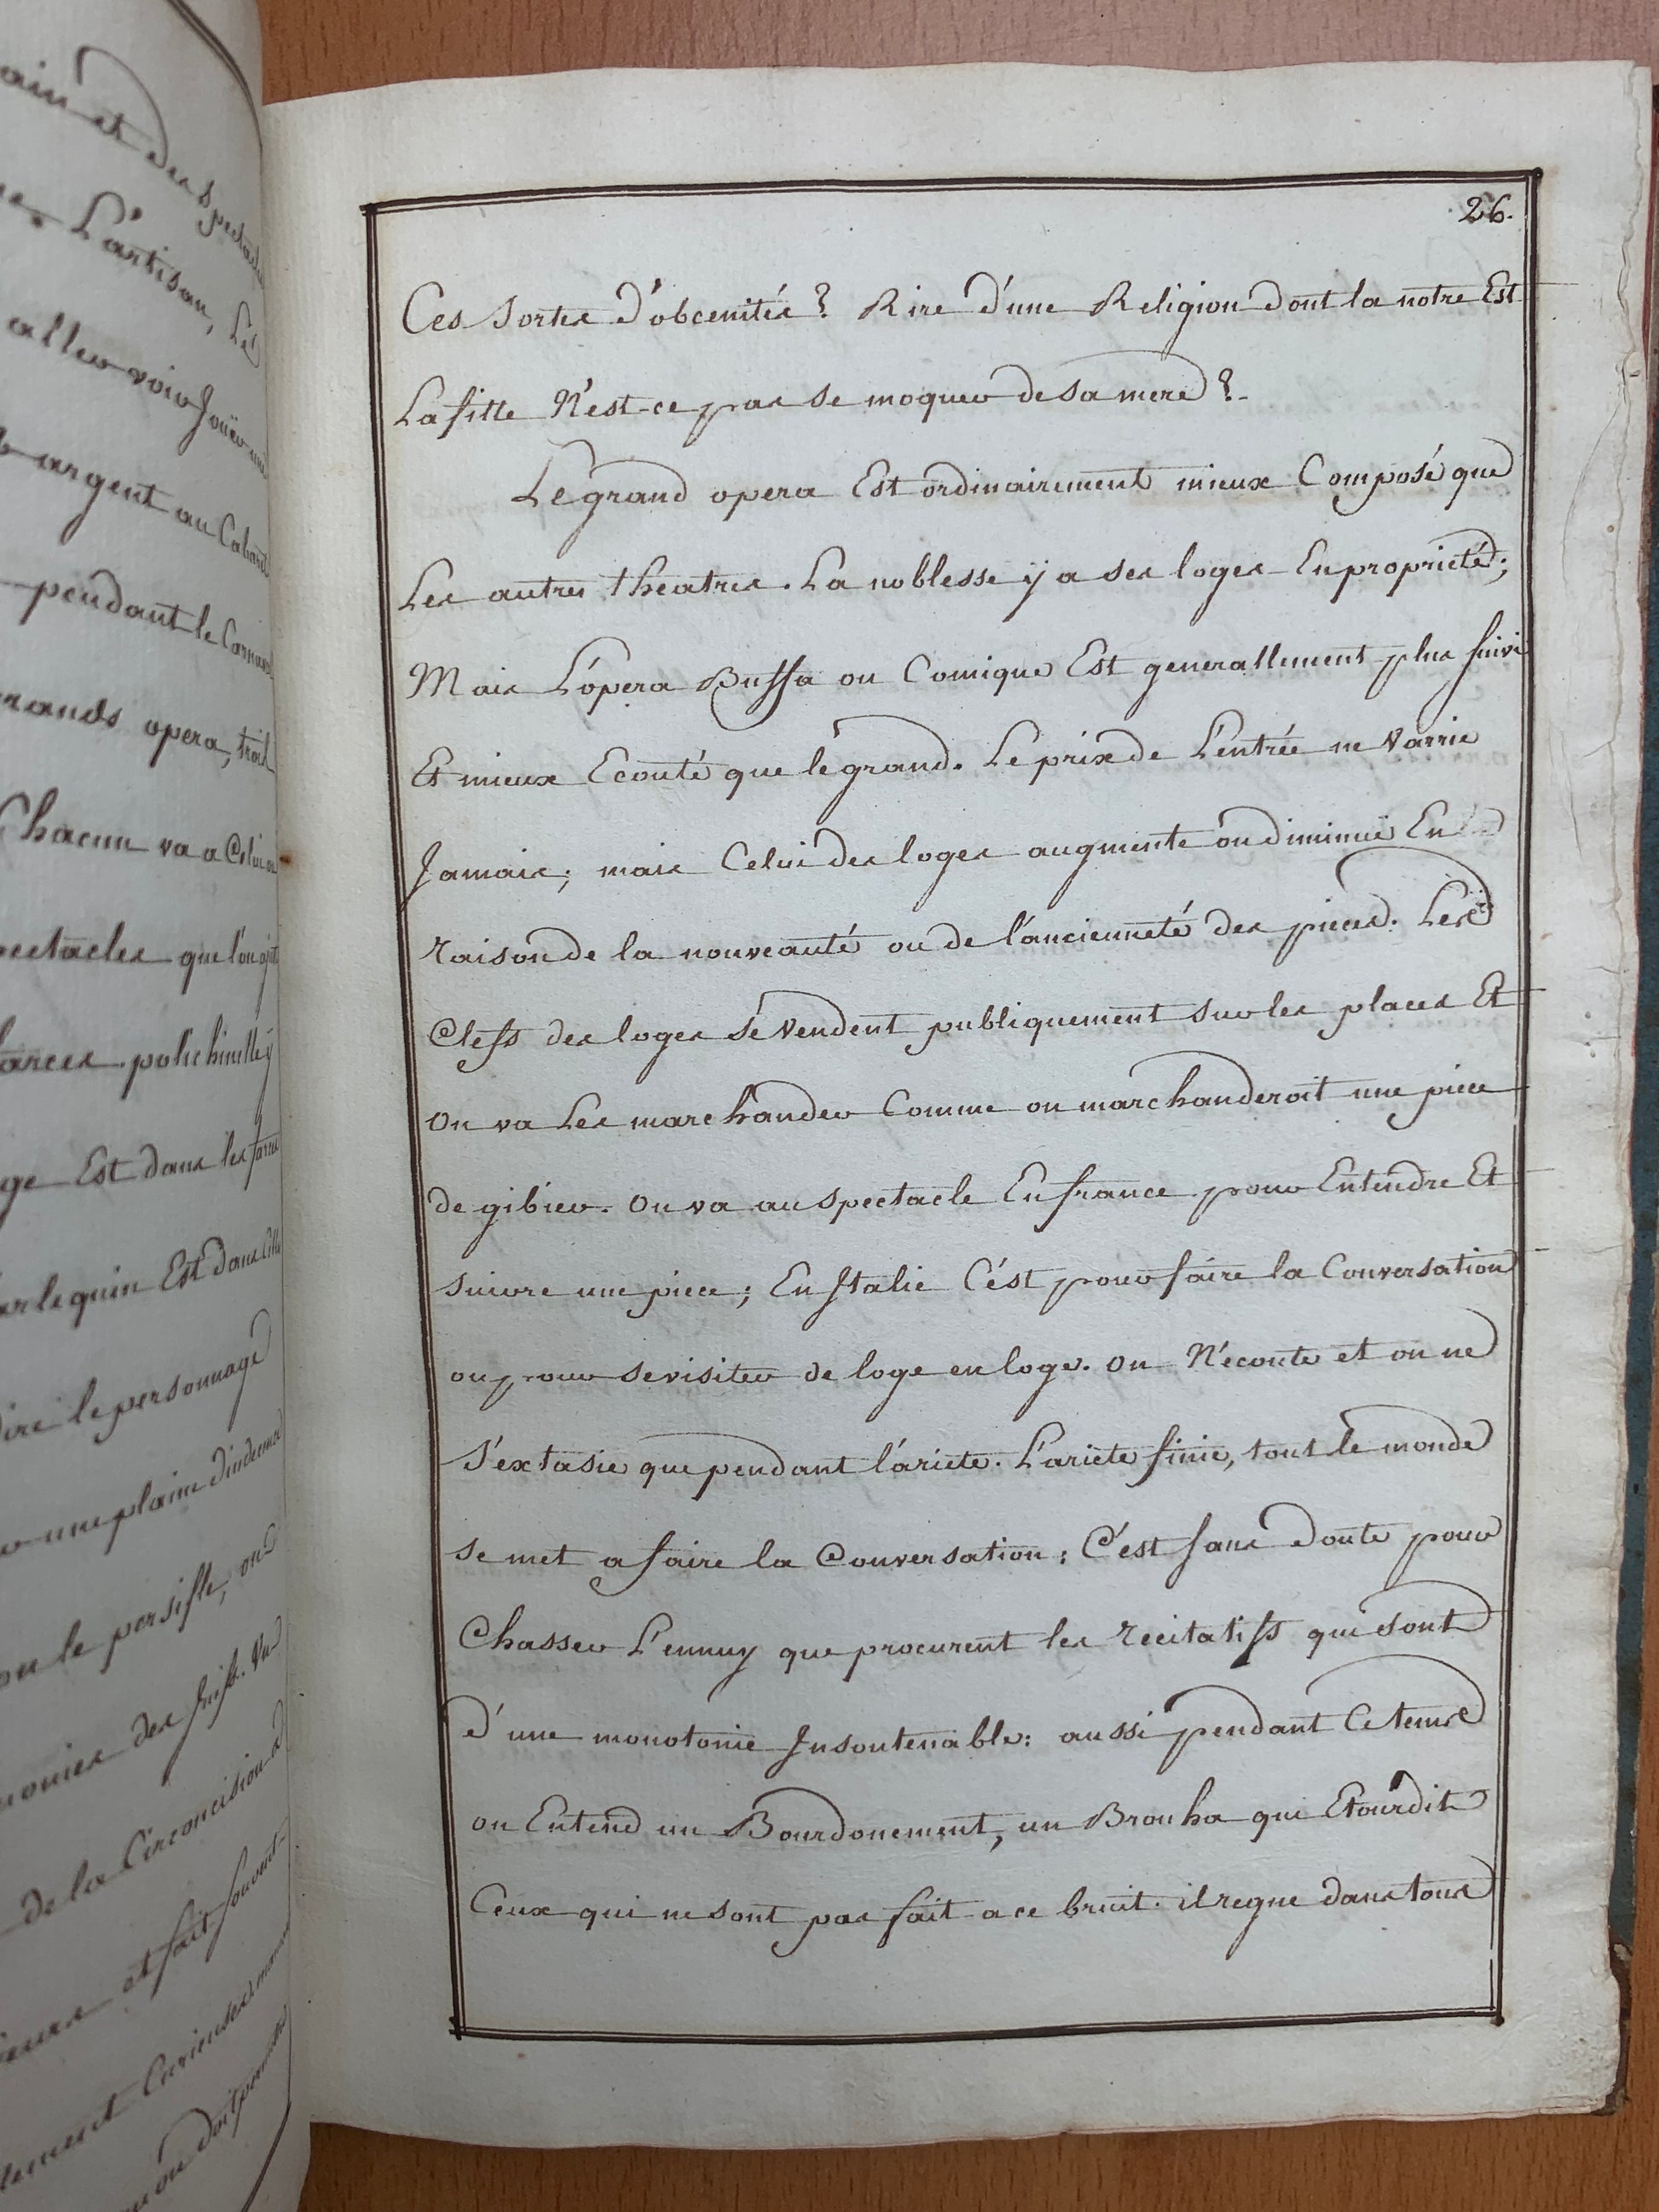 ain et des spectacles
L'artisan, Le
aller voir Joüer un
argent au Cabaret
pendant le Carnaval
rands opera, trois
Chacun va a Celui
pectacles que l'on
farces polichinelles
ge Est dans les
arlequin Est dans Celle
dire le personnage
une plaine
on le persifle, on
monies des Juifs. Un
de la Circoncision
et fait souvent
lement Curieuses
on doit
26.
Ces sortes d'obcenités? Rire d'une Religion dont la notre Est
La fille N'est-ce pas se moquer de sa mere?
Le grand opera Est ordinairement mieux Composé que
Les autres theatres. La noblesse ÿ a ses loges En proprieté;
Mais L'opera Buffa ou Comique Est generallement plus suivi
Et mieux Ecouté que le grand. Le prix de L'entrée ne varrie
Jamais; mais Celui des loges augmente ou diminuë En
raison de la nouveauté ou de l'ancienneté des pieces. Les
Cleffs des loges se vendent publiquement sur les places Et
on va Les marchander Comme on marchanderoit une piece
de gibier. on va au spectacle En france pour Entendre Et
suivre une piece; En Italie C'est pour faire la Conversation
ou pour se visiter de loge en loge. on N'ecoute et on ne
s'extasie que pendant l'ariete. L'ariete finie, tout le monde
se met a faire la Conversation; C'est sans doute pour
Chasser L'ennuy que procurent les recitatiffs qui sont
d'une monotonie Insoutenable: aussi pendant Ce tems
on Entend un Bourdonement, un Brouha qui Etourdit
Ceux qui ne sont pas fait a ce bruit. il regne dans tous